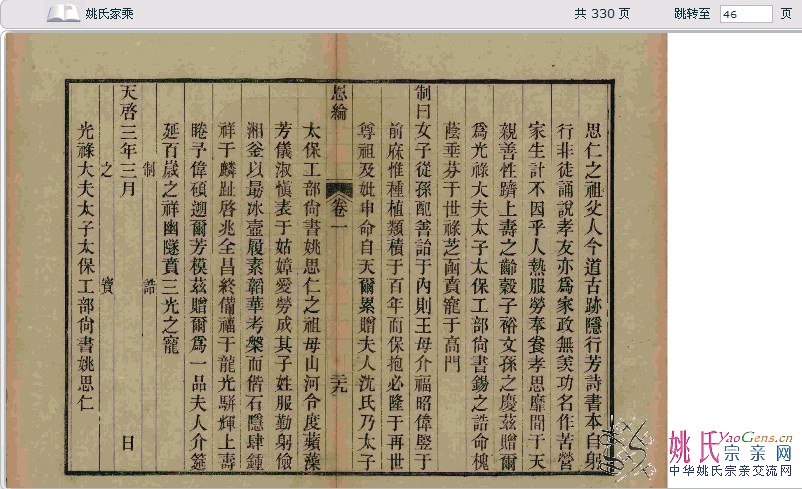 姚氏家乘
共 330 页
跳转至 46 页
思仁之祖父人今道古跡隱行芳詩書本自躬
行非徒誦說孝友亦爲家政無羨功名作苦營
家生計不因乎人熱服勞奉養孝思靡間于天
親善性躋上壽之齡穀子裕文孫之慶茲贈爾
爲光祿大夫太子太保工部尙書錫之誥命槐
蔭垂芬于世祿芝函賁寵于高門
制曰女子從孫配善詒于內則王母介福昭偉豎于
前庥惟種植類積于百年而保抱必隆于再世
尊祖及妣申命自天爾累贈夫人沈氏乃太子
恩綸
卷一
二九
太保工部尙書姚思仁之祖母山河令度蘋藻
芳儀淑愼表于姑嫜愛勞成其子姓服勤躬儉
湘釜以朂冰壺履素韜華考槃而偕石隱肆鍾
祥于麟趾啓兆全昌終備福于龍光駢輝上壽
睠予偉碩遡爾芳模茲贈爾爲一品夫人介筵
延百歲之祥幽隧賁三光之寵
制 誥
天啓三年三月 日
之 寶
光祿大夫太子太保工部尙書姚思仁
姚氏YaoGens.cn
宗亲网
中华姚氏宗亲交流网